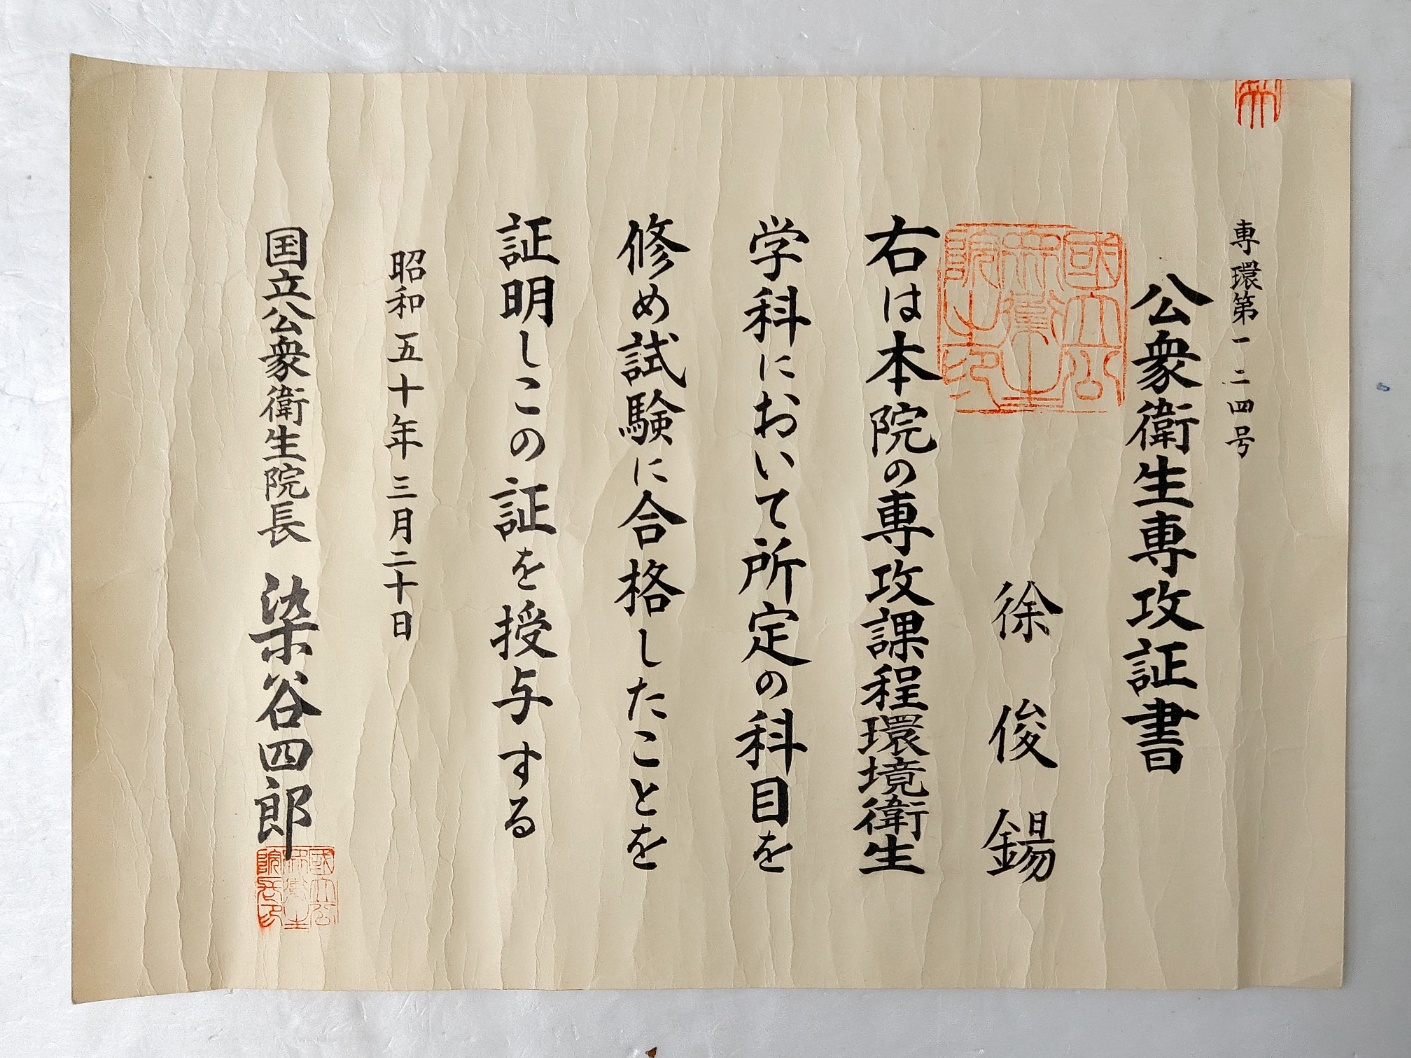 専環第一二四号
公衆衛生専攻証書
徐俊鍚
右は本院の専攻課程環境衛生
学科において所定の科目を
修め試験に合格したことを
証明しこの証を授与する
昭和五十年三月二十日
国立公衆衛生院長 染谷四郎
國立公衆衛生院之印
國立公衆衛生院長印